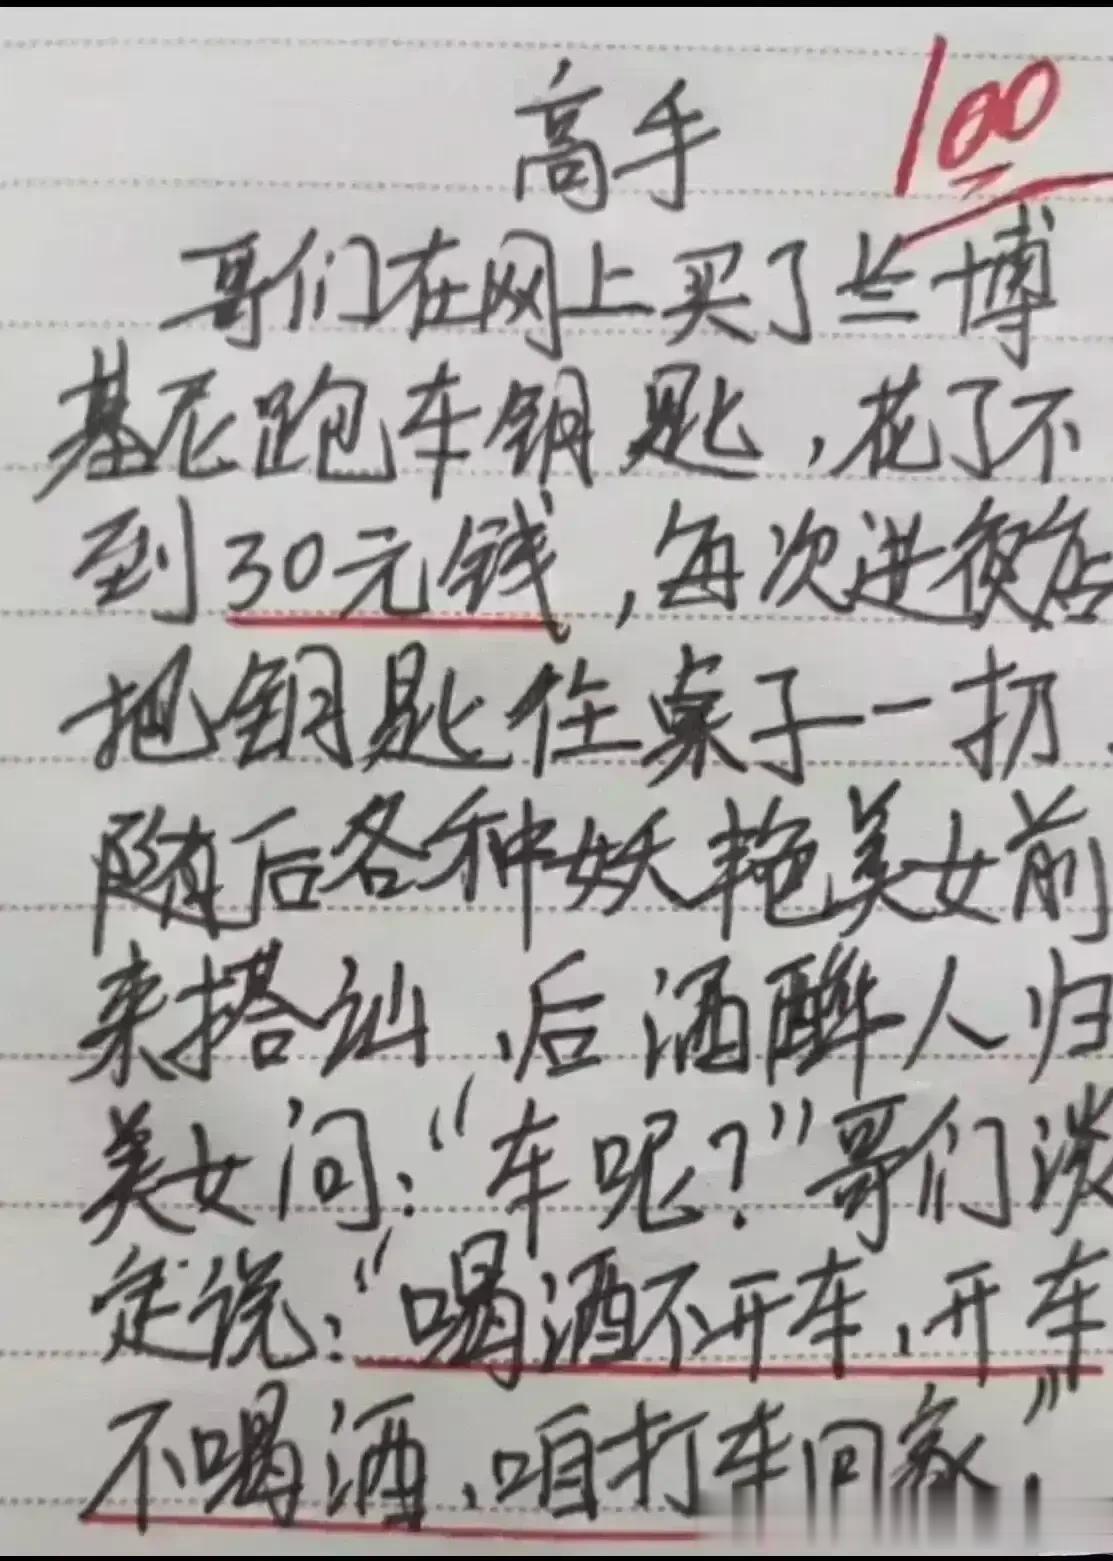 高手
100
哥们在网上买了兰博
基尼跑车钥匙，花了不
到30元钱，每次进夜店
把钥匙往桌子一扔，
随后各种妖艳美女前
来搭讪、后酒醉人归
美女问：“车呢？”哥们淡
定说：“喝酒不开车、开车
不喝酒、咱打车回家”，